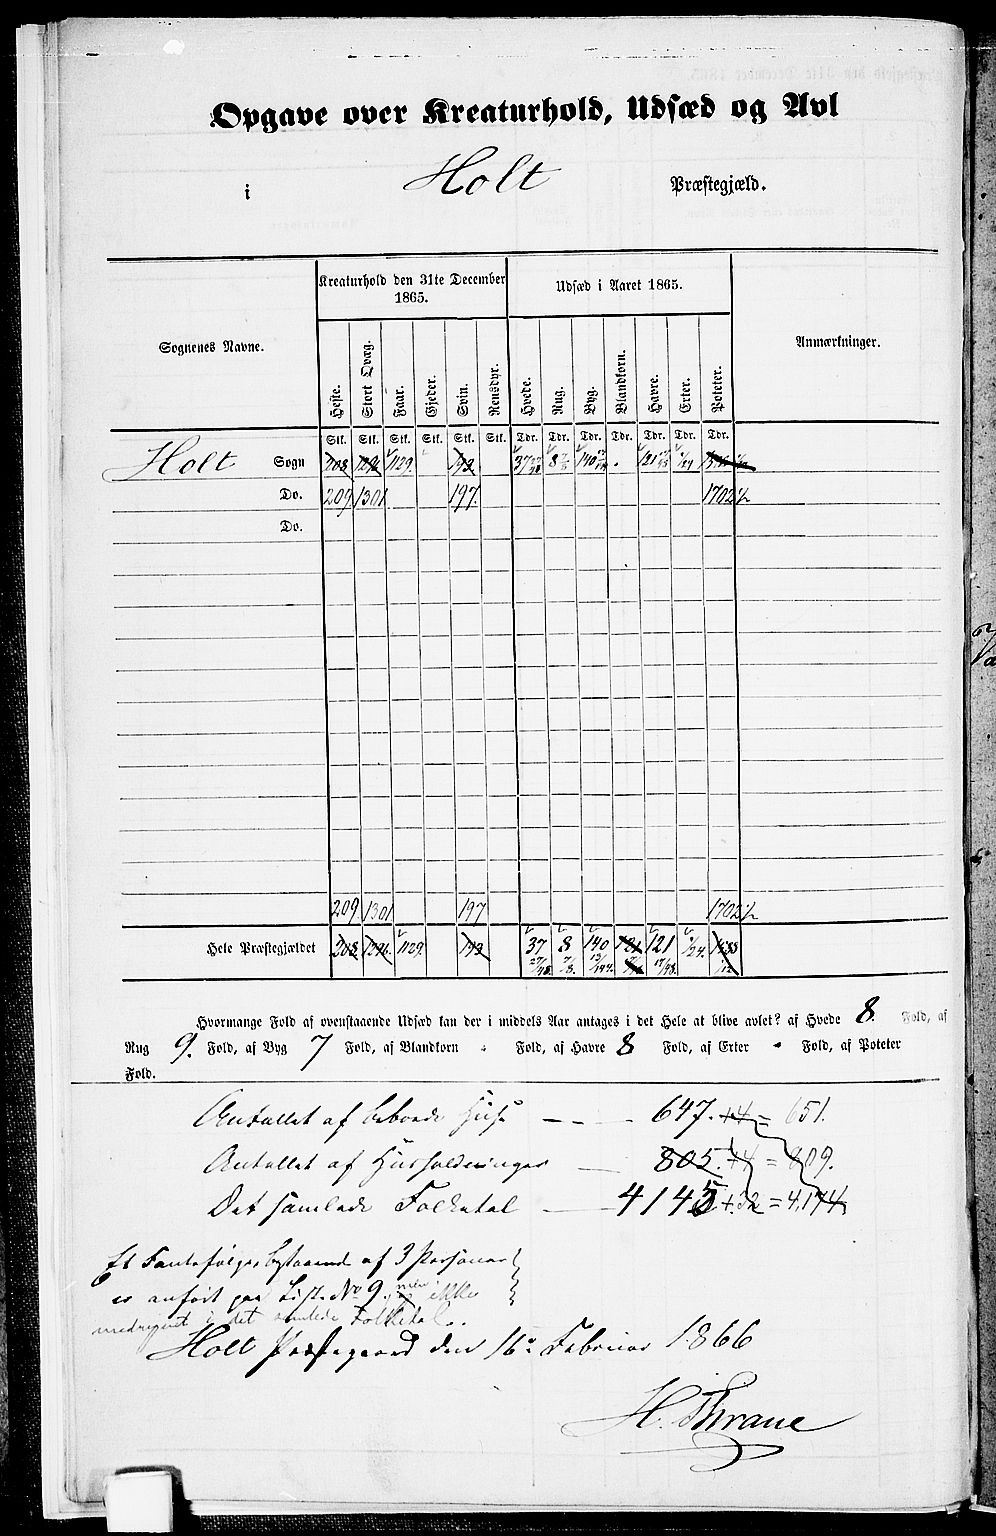 Opgave over Kreaturhold, Udsæd og Avl
i Holt Præstegjæld.
Kreaturhold den 31te December 1865.
Udsæd i Aaret 1865.
Sognenes Navne.
Anmærkninger.
Heste. Stort Qvæg. Faar. Gjeder. Sviin. Rensdyr. Hvede. Rug. Byg. Blandkorn. Havre. Erter. Poteter.
Stk. Stk. Stk. Stk. Stk. Stk. Tdr. Tdr. Tdr. Tdr. Tdr. Tdr. Tdr.
Holt Sogn 208 1296 1129. 193 37 8 140 121 1/24
Do. 209 1301 197. 1702 1/2
Do.
209 1301 197 1702 1/2
Hele Præstegjældet 208 1296. 1129. 193 37 8 140 121 121 1/24.
Hvormange Fold af ovenstaaende Udsæd kan der i middels Aar antages i det Hele at blive avlet? af Hvede 8. Fold, af
Rug 9. Fold, af Byg 7 Fold, af Blandkorn - Fold, af Havre 8 Fold, af Erter - Fold, af Poteter
Fold.
Antallet af beboede Huse — — — 647. +4 = 651.
Antallet af Husholdninger — 805. +4 = 809.
Det samlede Folketal — 4145 +32 = 4,174
Et Fantefølge bestaaende af 3 Personer
er anført paa Liste No 9., men ikke
medregnet i det samlede Folketal..
Holt Præstegaard den 16de Februar 1866
H. Thrane